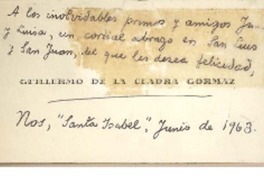 A los inolvidables primos y amigos
y Luisa, un cordial abrazo en San Luis
y San Juan, de que les desea felicidad,
GUILLERMO DE LA CUADRA GORMAZ
Nos, "Santa Isabel", Junio de 1963.